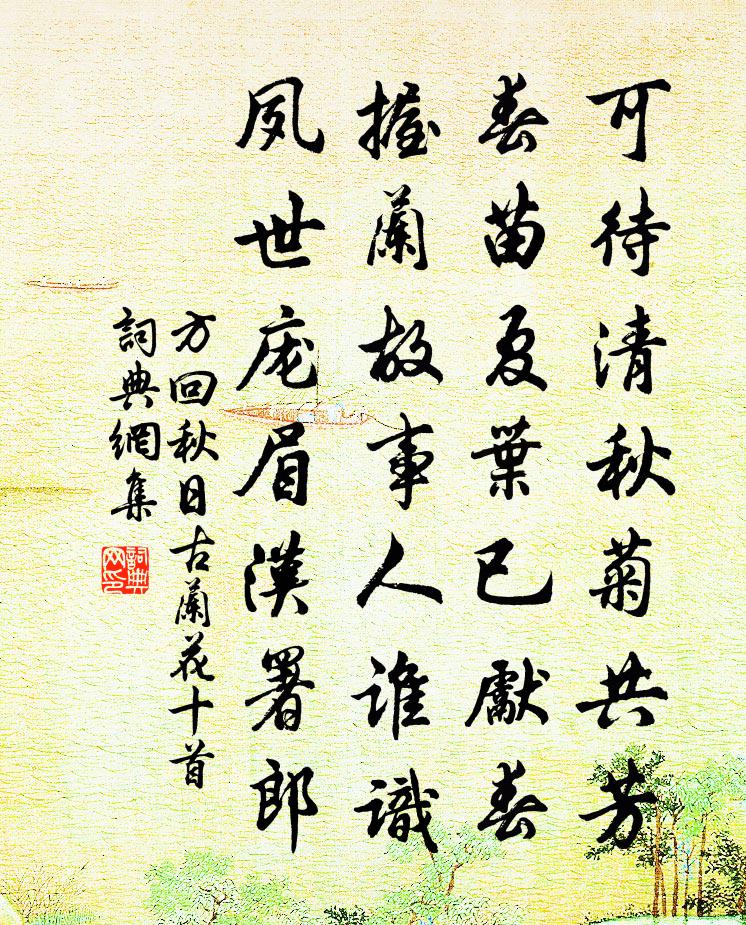 可待清秋菊共芳
春苗夏葉已獻春
握蘭故事人誰識
夙世庬眉漢署郎
方回秋日古蘭花十首
詞典網集
詞典
网印